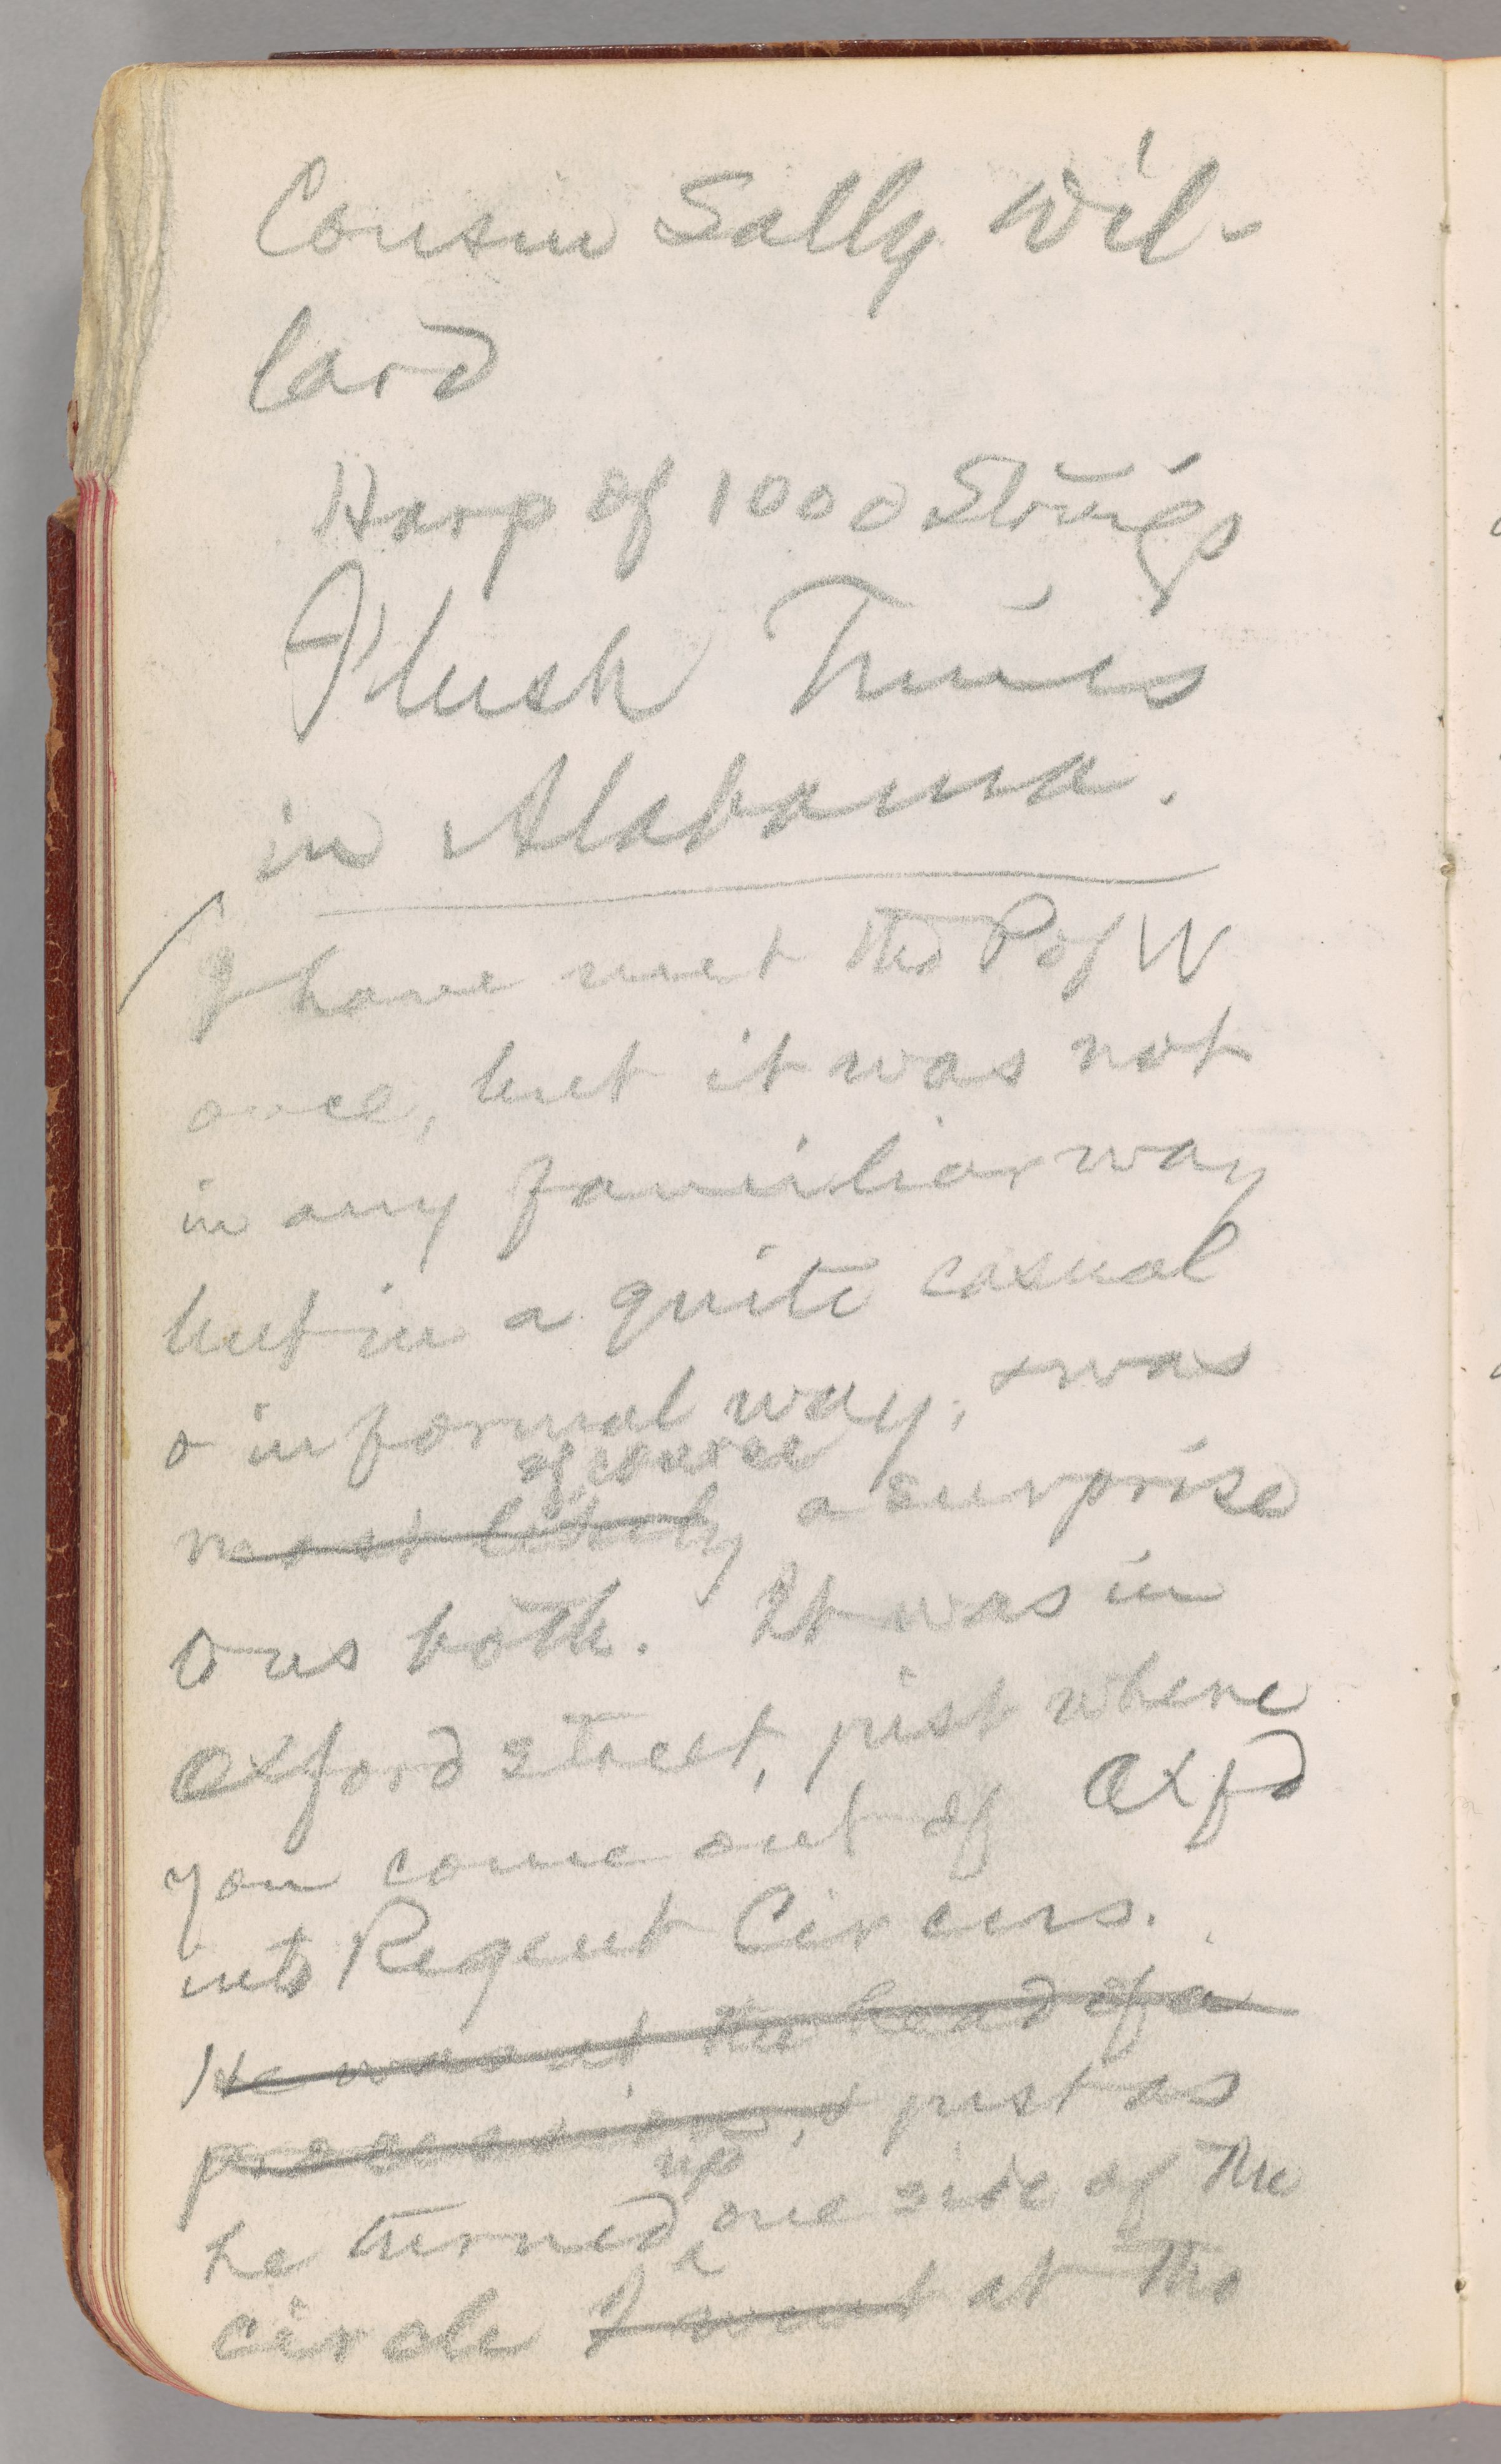 Cousin Sally Wil-
lard
Harp of 1000 Strings
Flush Times
in Alabama.
I have met the P of W
once, but it was not
in any familiar way
but in a quite casual
& informal way, & was
of course
most likely a surprise
to us both. It was in
Oxford street, just where
you come out of Oxfd
into Regent Circus.
He was at the head of a
procession, & just as
up
he turned one side of the
circle I went at the